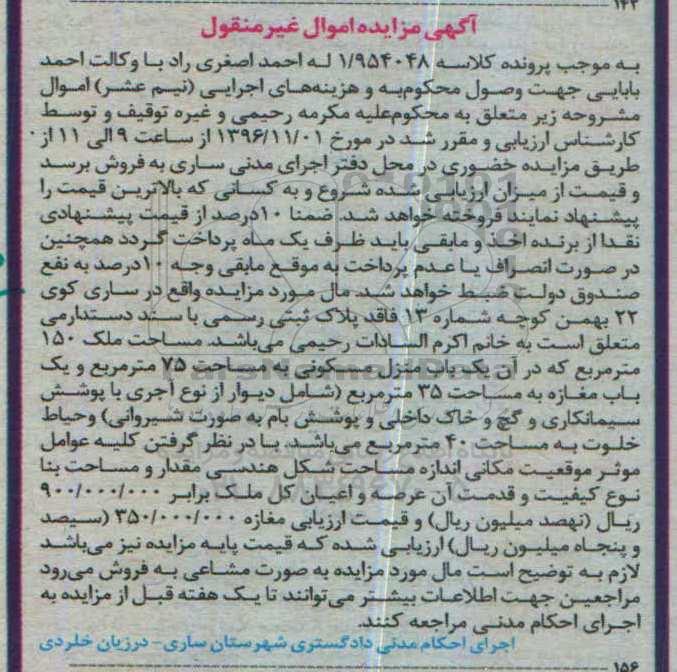 ۱۴۳
آگهی مزایده اموال غیرمنقول
به موجب پرونده کلاسه ۱/۹۵۴۰۴۸ له احمد اصغری راد با وکالت احمد
بابایی جهت وصول محکوم‌به و هزینه‌های اجرایی (نیم عشر) اموال
مشروحه زیر متعلق به محکوم‌علیه مکرمه رحیمی و غیره توقیف و توسط
کارشناس ارزیابی و مقرر شد در مورخ ۱۳۹۶/۱۱/۰۱ از ساعت ۹ الی ۱۱ از
طریق مزایده حضوری در محل دفتر اجرای مدنی ساری به فروش برسد
و قیمت از میزان ارزیابی شده شروع و به کسانی که بالاترین قیمت را
پیشنهاد نمایند فروخته خواهد شد. ضمنا ۱۰درصد از قیمت پیشنهادی
نقدا از برنده اخذ و مابقی باید ظرف یک ماه پرداخت گردد همچنین
در صورت انصراف یا عدم پرداخت به موقع مابقی وجه ۱۰درصد به نفع
صندوق دولت ضبط خواهد شد. مال مورد مزایده واقع در ساری کوی
۲۲ بهمن کوچه شماره ۱۳ فاقد پلاک ثبتی رسمی با سند دستدارمی
متعلق است به خانم اکرم السادات رحیمی می‌باشد. مساحت ملک ۱۵۰
مترمربع که در آن یک باب منزل مسکونی به مساحت ۷۵ مترمربع و یک
باب مغازه به مساحت ۳۵ مترمربع (شامل دیوار از نوع آجری با پوشش
سیمانکاری و گچ و خاک داخلی و پوشش بام به صورت شیروانی) وحیاط
خلوت به مساحت ۴۰ مترمربع می‌باشد. با در نظر گرفتن کلیه عوامل
موثر موقعیت مکانی اندازه مساحت شکل هندسی مقدار و مساحت بنا
نوع کیفیت و قدمت آن عرصه و اعیان کل ملک برابر ۹۰۰/۰۰۰/۰۰۰
ریال (نهصد میلیون ریال) و قیمت ارزیابی مغازه ۳۵۰/۰۰۰/۰۰۰ (سیصد
و پنجاه میلیون ریال) ارزیابی شده که قیمت پایه مزایده نیز می‌باشد
لازم به توضیح است مال مورد مزایده به صورت مشاعی به فروش می‌رود
مراجعین جهت اطلاعات بیشتر می‌توانند تا یک هفته قبل از مزایده به
اجرای احکام مدنی مراجعه کنند.
اجرای احکام مدنی دادگستری شهرستان ساری- درزیان خلردی
۱۵۶